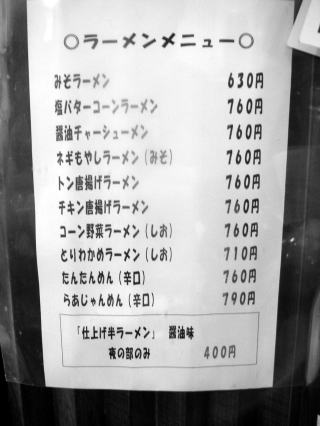 ○ラーメンメニュー○
みそラーメン 630円
塩バターコーンラーメン 760円
醤油チャーシューメン 760円
ネギもやしラーメン（みそ） 760円
トン唐揚げラーメン 760円
チキン唐揚げラーメン 760円
コーン野菜ラーメン（しお） 760円
とりわかめラーメン（しお） 710円
たんたんめん（辛口） 760円
らあじゃんめん（辛口） 790円
「仕上げ半ラーメン」 醤油味
夜の部のみ 400円